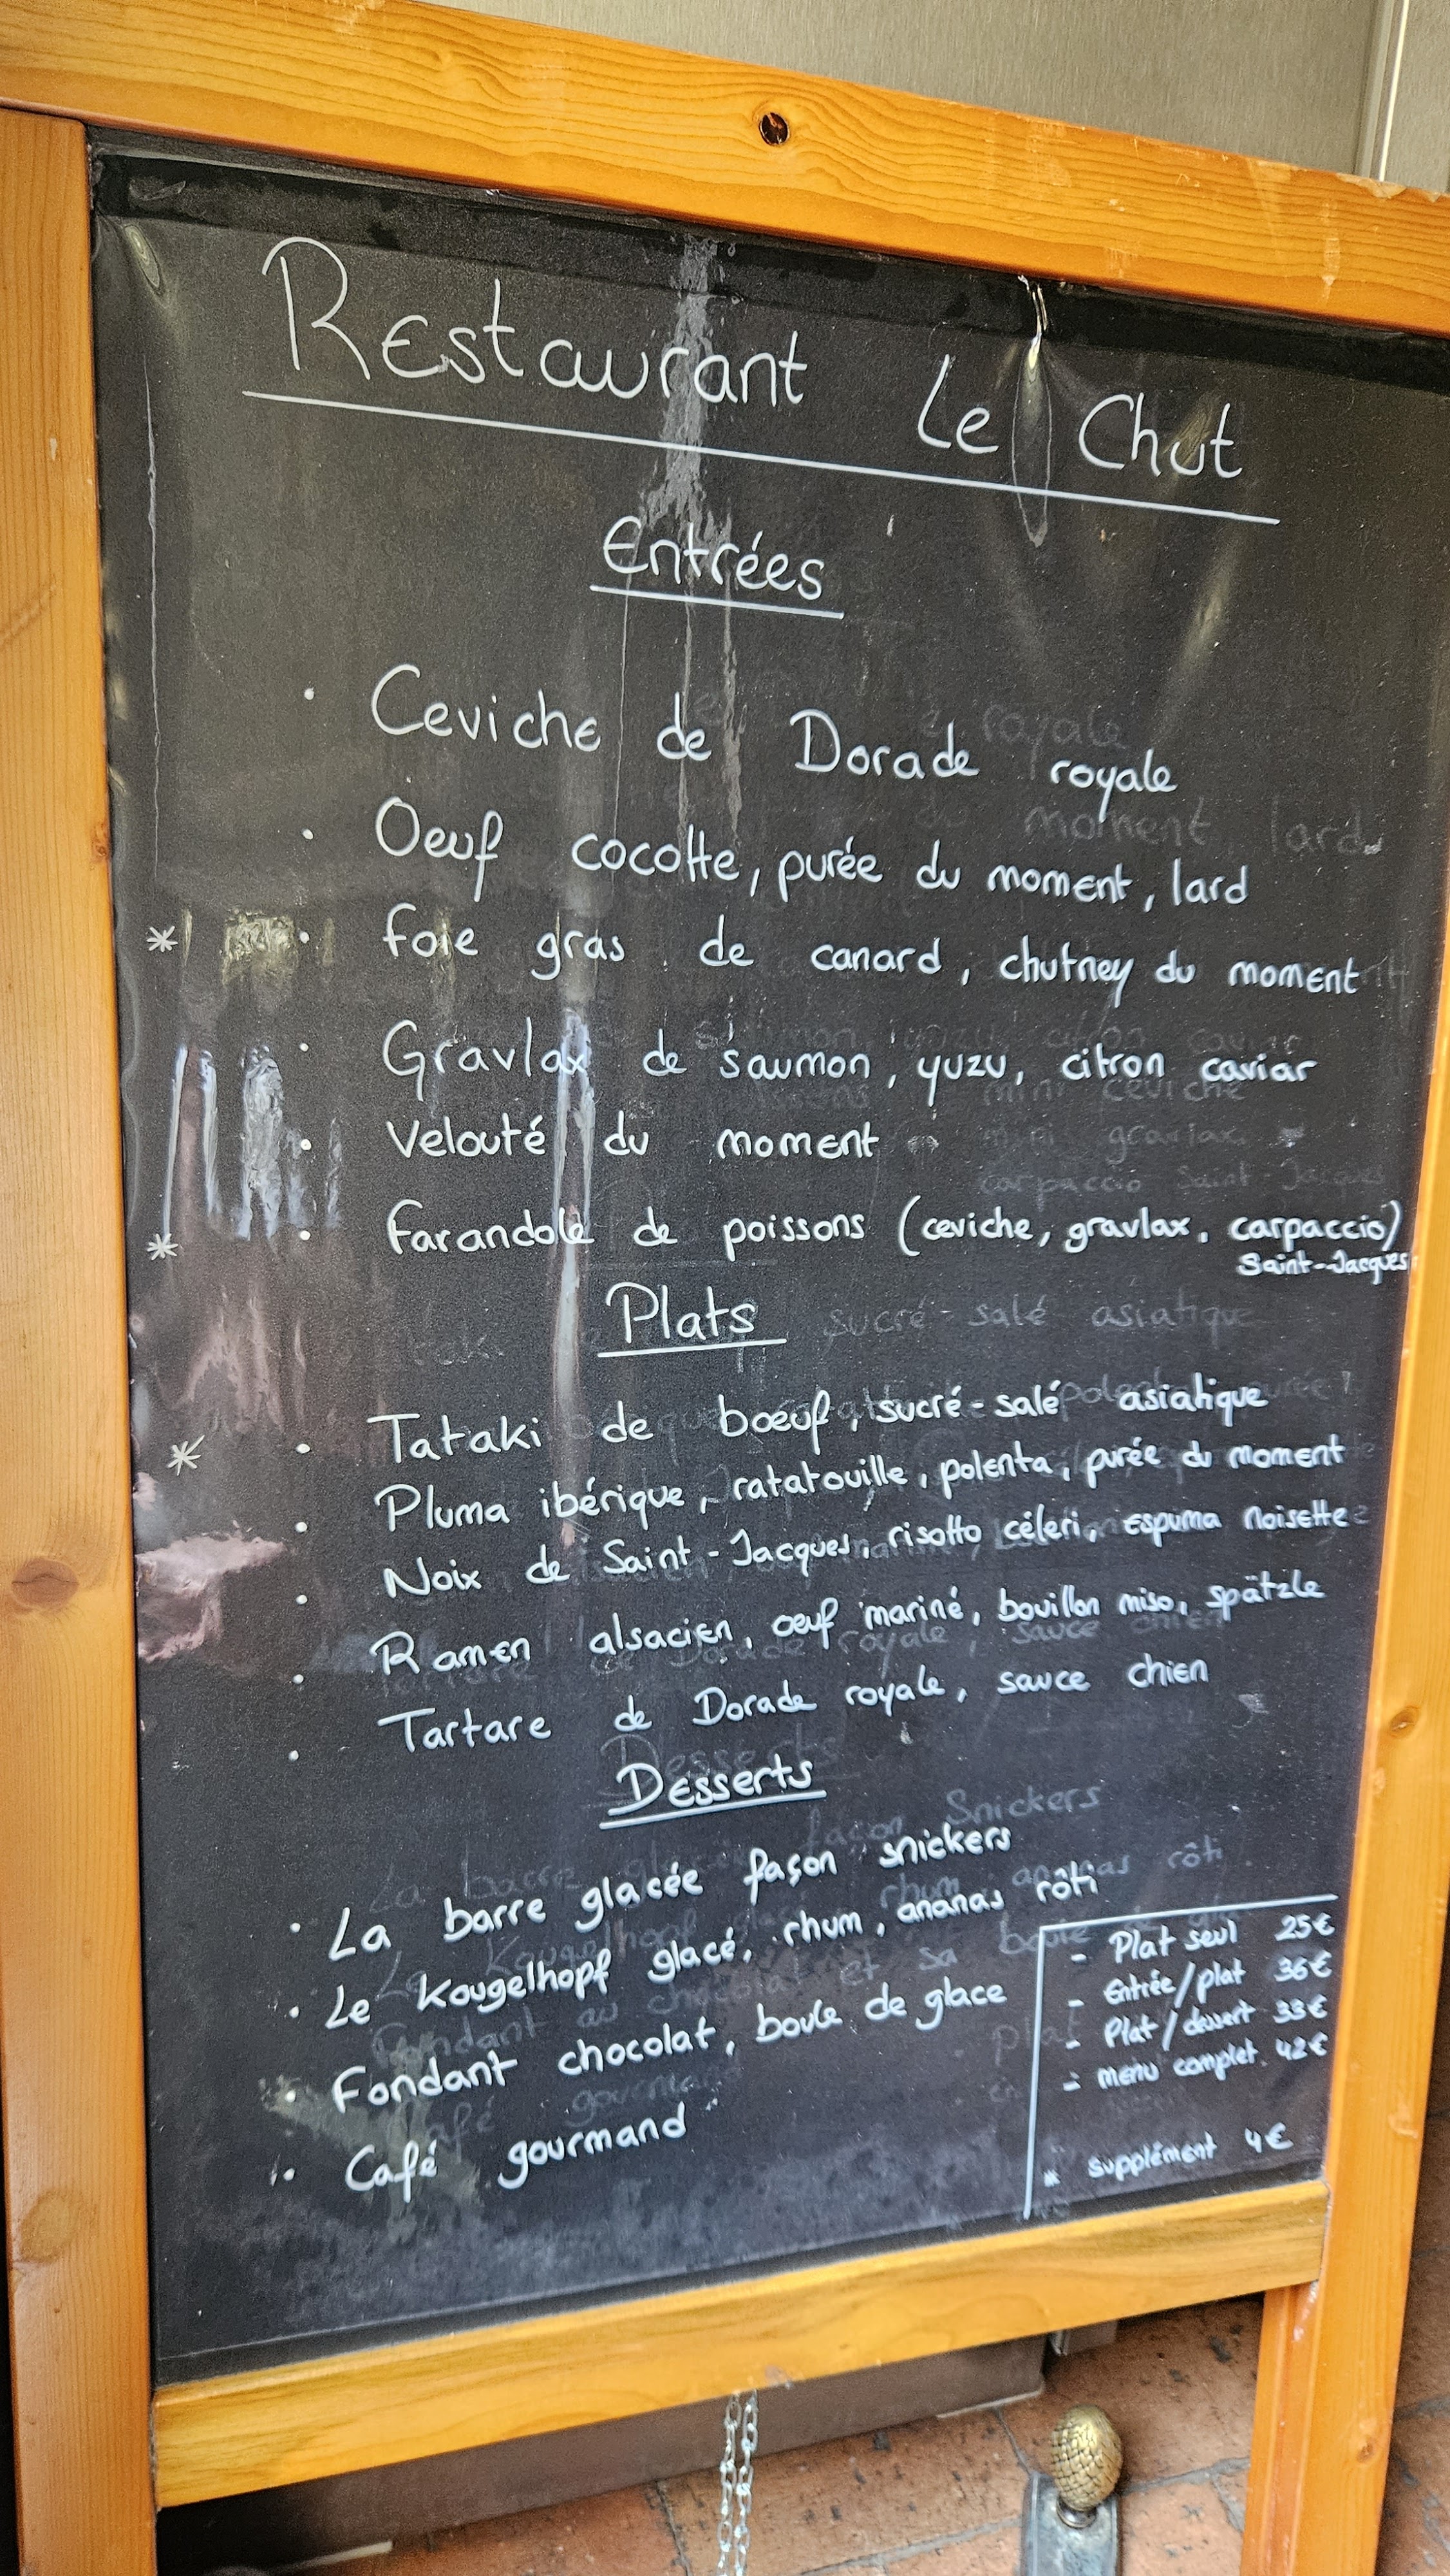 Restaurant Le Chut
Entrées
· Ceviche de Dorade royale
· Oeuf cocotte, purée du moment, lard
* · foie gras de canard, chutney du moment
· Gravlax de saumon, yuzu, citron caviar
· Velouté du moment
* · farandole de poissons (ceviche, gravlax, carpaccio)
Saint-Jacques
Plats
* · Tataki de boeuf, sucré-salé asiatique
· Pluma ibérique, ratatouille, polenta, purée du moment
· Noix de Saint-Jacques, risotto céleri, espuma noisette
· Ramen alsacien, oeuf mariné, bouillon miso, spätzle
· Tartare de Dorade royale, sauce chien
Desserts
· La barre glacée façon snickers
· Le Kougelhopf glacé, rhum, ananas rôti
· Fondant chocolat, boule de glace
· Café gourmand
- Plat seul 25€
- Entrée/plat 36€
- Plat/dessert 33€
- menu complet 42€
* supplément 4€